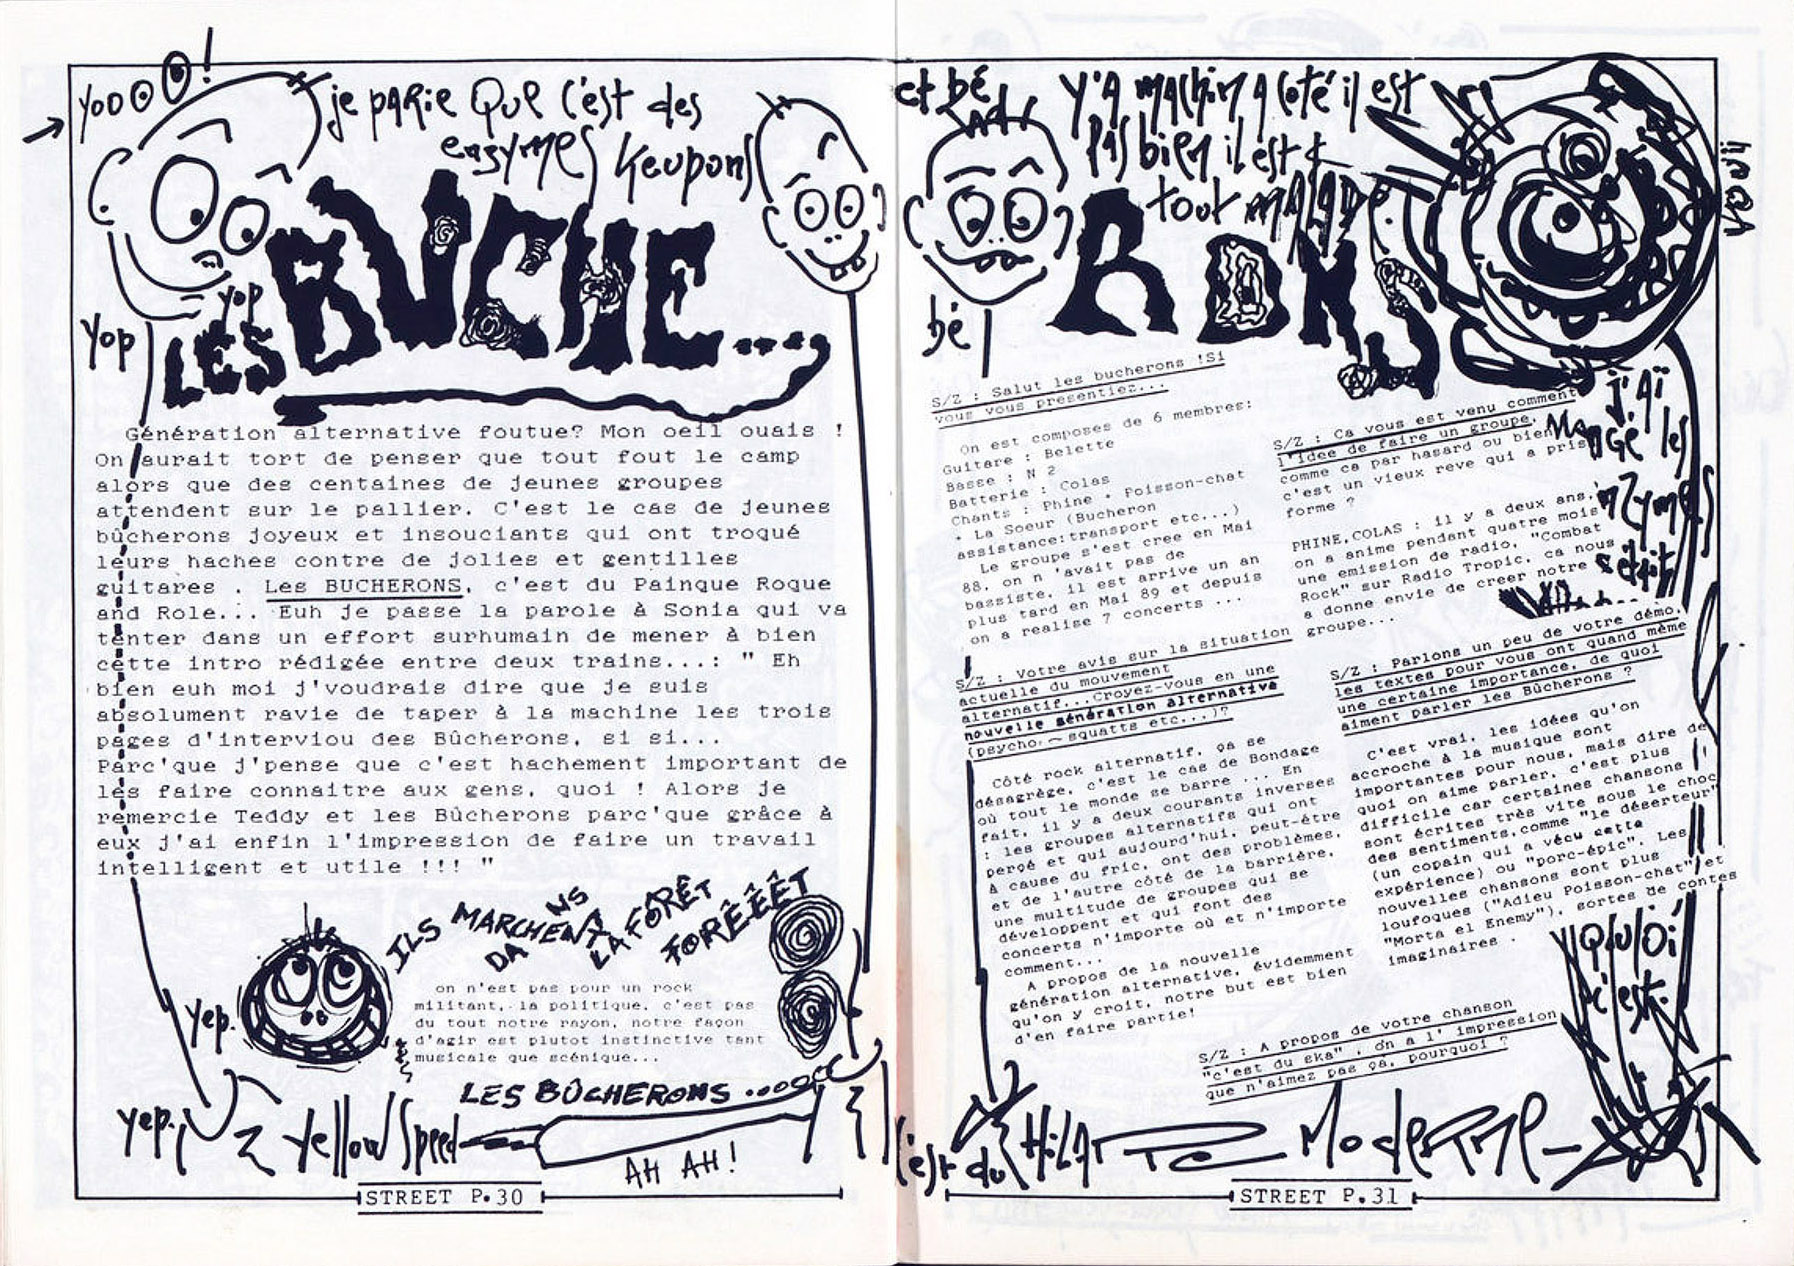 YOOO !
je parie que c'est des
enzymes keupons
yop
yop
LES BUCHE...
Génération alternative foutue? Mon oeil ouais !
On aurait tort de penser que tout fout le camp
alors que des centaines de jeunes groupes
attendent sur le pallier. C'est le cas de jeunes
bûcherons joyeux et insouciants qui ont troqué
leurs haches contre de jolies et gentilles
guitares . Les BUCHERONS, c'est du Painque Roque
and Role... Euh je passe la parole à Sonia qui va
tenter dans un effort surhumain de mener à bien
cette intro rédigée entre deux trains...: " Eh
bien euh moi j'voudrais dire que je suis
absolument ravie de taper à la machine les trois
pages d'interviou des Bûcherons, si si...
Parc'que j'pense que c'est hachement important de
les faire connaitre aux gens, quoi ! Alors je
remercie Teddy et les Bûcherons parc'que grâce à
eux j'ai enfin l'impression de faire un travail
intelligent et utile !!! "
ILS MARCHENT
DANS
LA FORÊT
FORÊÊÊT
on n'est pas pour un rock
militant, la politique, c'est pas
du tout notre rayon, notre façon
d'agir est plutot instinctive tant
musicale que scénique...
LES BÛCHERONS ...
yep.
yep.
Yellow Speed
AH AH!
STREET P.30
et bé
Y'A machin a coté il est
pas bien il est
tout malade
bé
RONS
S/Z : Salut les bucherons !Si
vous vous presentiez...
On est composes de 6 membres:
Guitare : Belette
Basse : N 2
Batterie : Colas
Chants : Phine + Poisson-chat
+ La Soeur (Bucheron
assistance:transport etc...)
Le groupe s'est cree en Mai
88, on n 'avait pas de
bassiste, il est arrive un an
plus tard en Mai 89 et depuis
on a realise 7 concerts ...
S/Z : Votre avis sur la situation
actuelle du mouvement
alternatif...Croyez-vous en une
nouvelle génération alternative
(psycho - squatts etc...)?
Côté rock alternatif, ça se
désagrège, c'est le cas de Bondage
où tout le monde se barre ... En
fait, il y a deux courants inverses
: les groupes alternatifs qui ont
percé et qui aujourd'hui, peut-être
à cause du fric, ont des problèmes,
et de l'autre côté de la barrière,
une multitude de groupes qui se
développent et qui font des
concerts n'importe où et n'importe
comment...
A propos de la nouvelle
génération alternative, évidemment
qu'on y croit, notre but est bien
d'en faire partie!
S/Z : Ca vous est venu comment
l'idee de faire un groupe,
comme ca par hasard ou bien
c'est un vieux reve qui a pris
forme ?
PHINE,COLAS : il y a deux ans,
on a anime pendant quatre mois
une emission de radio, "Combat
Rock" sur Radio Tropic, ca nous
a donne envie de creer notre
groupe...
S/Z : Parlons un peu de votre démo,
les textes pour vous ont quand même
une certaine importance, de quoi
aiment parler les Bûcherons ?
C'est vrai, les idées qu'on
accroche à la musique sont
importantes pour nous, mais dire de
quoi on aime parler, c'est plus
difficile car certaines chansons
sont écrites très vite sous le choc
des sentiments,comme "le déserteur"
(un copain qui a vécu cette
expérience) ou "porc-épic". Les
nouvelles chansons sont plus
loufoques ("Adieu Poisson-chat" et
"Morta el Enemy"), sortes de contes
imaginaires .
S/Z : A propos de votre chanson
"c'est du ska" , on a l' impression
que n'aimez pas ça, pourquoi ?
j'aï
Mangé les
nzymes
c'était
Quoi
c'est
c'est du
Moderne
STREET P.31